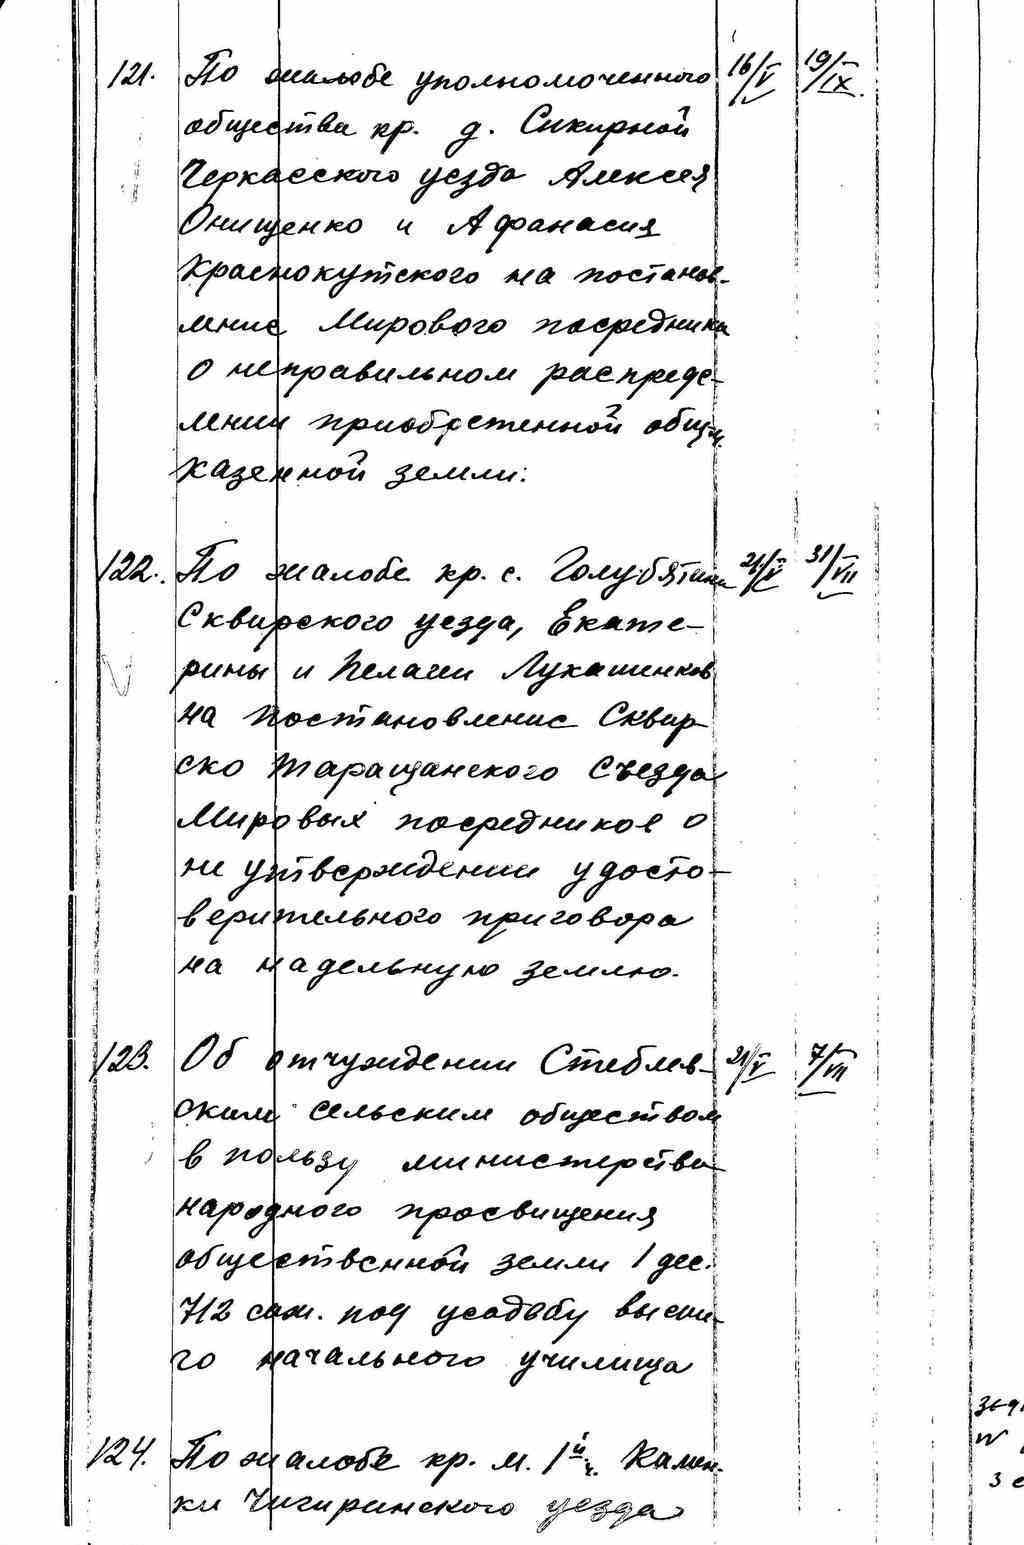 121. По жалобе уполномоченного 16/V 19/IX.
общества кр. д. Сикирной
Черкасского уезда Алексея
Онищенко и Афанасия
Краснокутского на постанов-
ление Мирового посредника
о неправильном распреде-
лении приобретенной общ.
казенной земли.
122. По жалобе кр. с. Голубятин 21/V 31/VII
Сквирского уезда, Екате-
рины и Пелагеи Лукашенков
на постановление Сквир-
ско Таращанского Съезда
Мировых посредников о
не утверждении удосто-
верительного приговора
на надельную землю.
123. Об отчуждении Стеблев- 21/V 7/VII
ским сельским обществом
в пользу министерства
народного просвещения
общественной земли 1 дес.
712 саж. под усадьбу высше-
го начального училища
124. По жалобе кр. м. 1й ч. Камен-
ки Чигиринского уезда